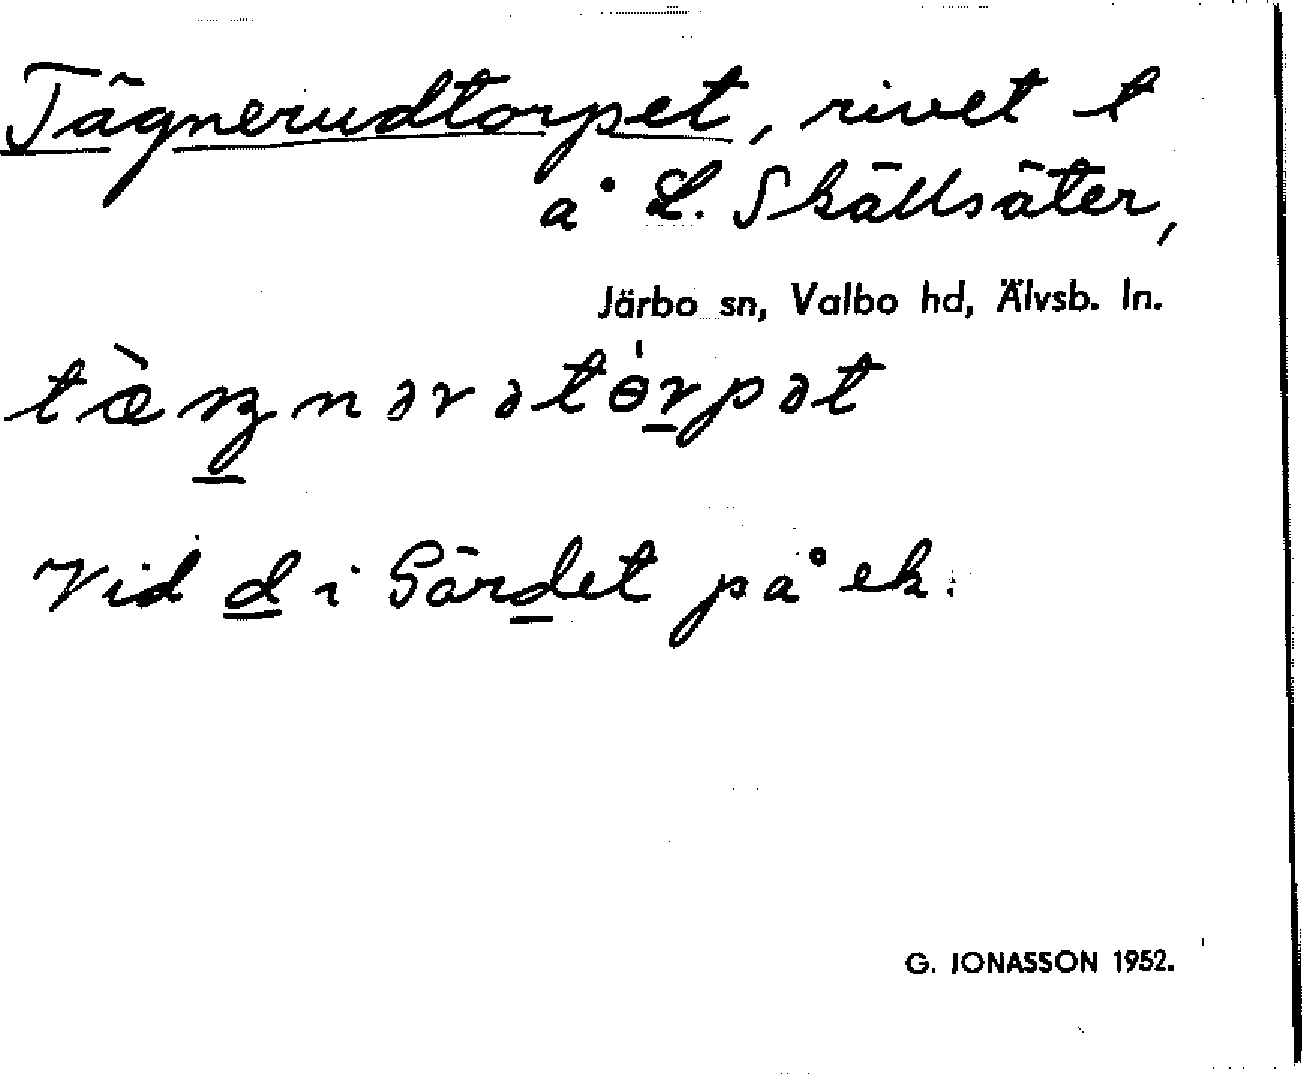 Tägnerudtorpet, rivet t
å L. Skällsäter,
Järbo sn, Valbo hd, Älvsb. ln.
Vid d i Gärdet på ek.
G. JONASSON 1952.